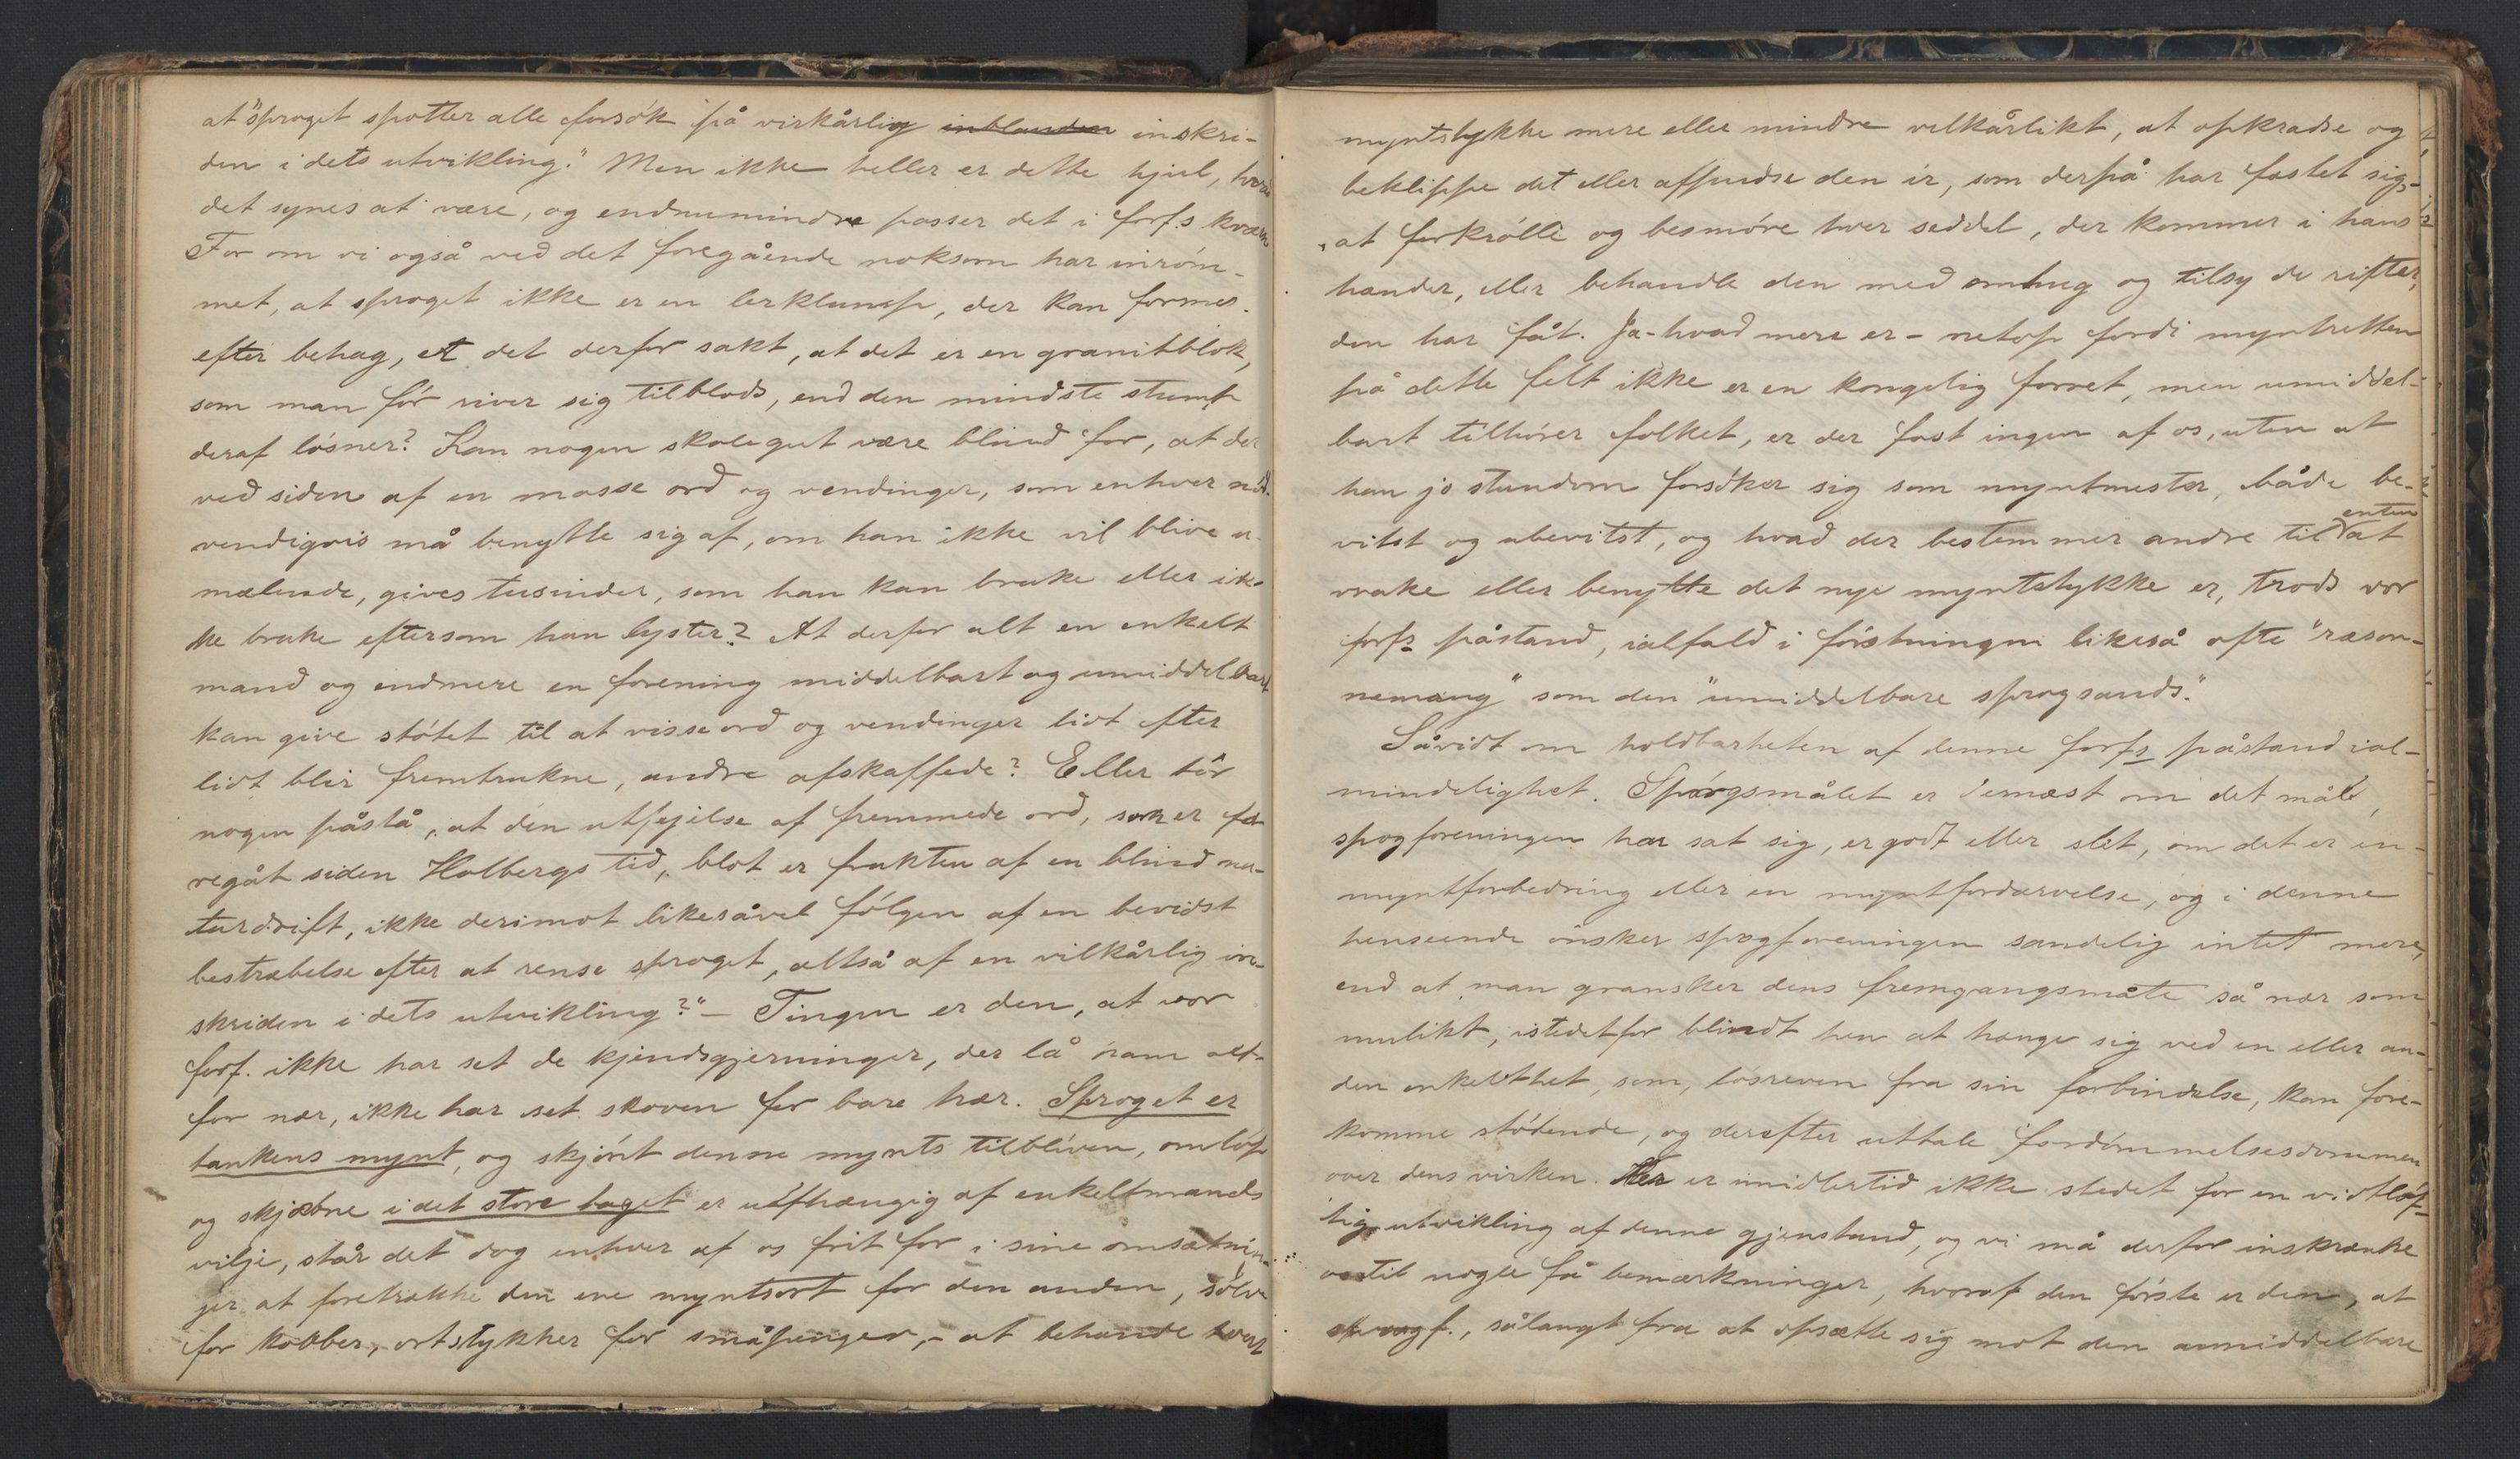 at "sproget spotter alle forsök på virkårlig inblanden inskri-
den i dets utvikling." Men ikke heller er dette hjul, hvad
det synes at være, og endnumindre passer det i forf.s kværn
For om vi også ved det foregående noksom har inröm-
met, at sproget ikke er en lerklump, der kan formes
efter behag, er det derfor sakt, at det er en granitblok,
som man för river sig tilblods, end den mindste stump
deraf lösner? Kan nogen skolegut være blind for, at der
ved siden af en masse ord og vendinger, som enhver nöd-
vendigvis må benytte sig af, om han ikke vil blive u-
mælende, gives tusinder, som han kan bruke eller ik-
ke bruke eftersom han lyster? At derfor alt en enkelt
mand og endmere en forening middelbart og umiddelbart
kan give stötet til at visse ord og vendinger lidt efter
lidt blir fremtrukne, andre afskaffede? Eller tör
nogen påstå, at den utfejelse af fremmede ord, som er fo-
regåt siden Holbergs tid, blot er frukten af en blind na-
turdrift, ikke derimot likesåvel fölgen af en bevidst
bestræbelse efter at rense sproget, altså af en vilkårlig in-
skriden i dets utvikling?" — Tingen er den, at vor
forf. ikke har set de kjendsgjerninger, der lå ham alt-
for nær, ikke har set skoven for bare trær. Sproget er
tankens mynt, og skjönt denne mynts tilbliven, omlöp
og skjæbne i det store taget er uafhængig af enkeltmands
vilje, står det dog enhver af os frit for i sine omsætnin-
jer at foretrække den ene myntsort for den anden, sölv
for kobber, ortstykker for småpenger, – at behande hvert
myntstykke mere eller mindre vilkårlikt, at opkradse og
beklippe det eller afpudse den ir, som derpå har fæstet sig,
at forkrölle og besmöre hver seddel, der kommer i hans
hænder, eller behandle den med omhug og tilsy de rifter,
den har fåt. Ja – hvad mere er – netop fordi myntretten
på dette felt ikke er en kongelig forret, men umiddel-
bart tilhörer folket, er der fast ingen af os, uten at
han jo stundom forsöker sig som myntmester, både be-
vitst og ubevitst, og hvad der bestemmer andre til enten at
vrake eller benytte det nye myntstykke er, trods vor
forfs påstand, ialfald i förstningen likeså ofte "ræson-
nemang" som den "umiddelbare sprogsands."
Såvidt om holdbarheten af denne forfs påstand ial-
mindelighet. Spörgsmålet er dernæst om det mål,
spogforeningen har sat sig, er godt eller slet, om det er en
myntforbedring eller en myntfordærvelse, og i denne
henseende önsker spogforeningen sandelig intet mere,
end at man gransker dens fremgangsmåte så nær som
mulikt, istedetfor blindt hen at hænge sig ved en eller an-
den enkelthet, som, lösreven fra sin forbindelse, kan fore-
komme stödende, og derefter uttale fordömmelsesdommen
over dens virken. Her er imidlertid ikke stedet for en vidtlöf-
tig utvikling af denne gjenstand, og vi må derfor inskrænke
os til nogle få bemærkninger, hvoraf den förste er den, at
sprogf., sålangt fra at opsætte sig mot den umiddelbare